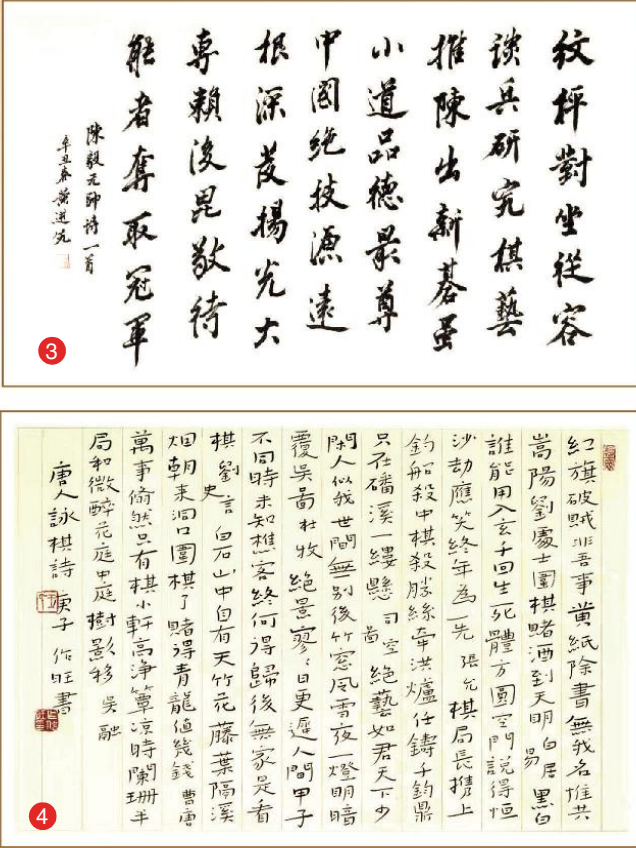 紋枰對坐從容
談兵研究棋藝
推陳出新碁虽
小道品德最尊
中國絶技源遠
根深發揚光大
專賴後昆敬待
能者奪取冠軍
陳毅元帥詩一首
辛丑春黄進先
3
紅旗破賊非吾事黄紙除書無我名惟共
嵩陽劉處士圍棋賭酒到天明 白居易 黑白
誰能用入玄千回生死體方圓空門說得恒
沙劫應笑終年為一先 張允 棋局長攜上
釣船殺中棋殺勝絲牽洪爐任鑄千鈞鼎
只在磻溪一縷懸 司空圖 絶藝如君天下少
閑人似我世間無別後竹窓風雪夜一燈明暗
覆吳圖 杜牧 絶景寥〻日更遲人間甲子
不同時未知樵客終何得歸後無家是看
棋 劉言史 白石山中自有天竹花藤葉隔溪
烟朝来洞口圍棋了賭得青龍值幾錢 曹唐
萬事翛然只有棋小軒高淨簟凉時闌珊半
局和微醉花庭中庭樹影移 吳融
唐人詠棋詩 庚子 作旺書
4